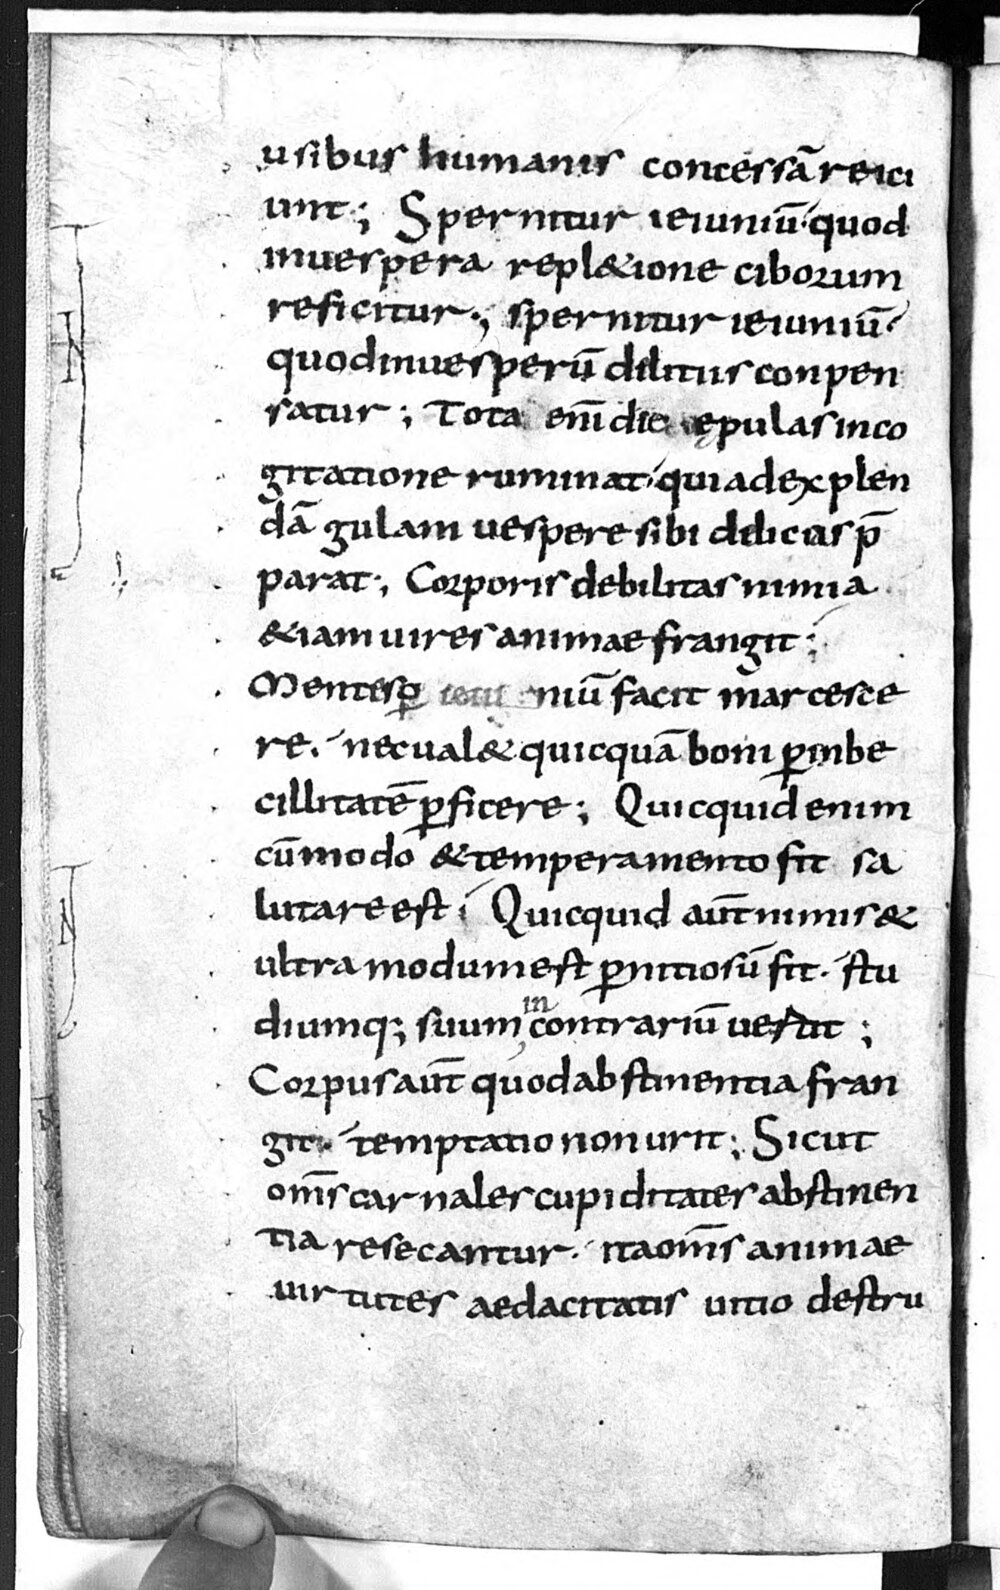 usibus humanis concessā reici
unt; Spernitur ieiuniū quod
in uespera repl&ione ciborum
reficitur; spernitur ieiuniū
quod in uesperū dilitus conpen
satur; Tota enī die epulas in co
gitatione ruminat qui ad explen
dā gulam uespere sibi dilicias p̄
parat; Corporis debilitas nimia
&iam uires animae frangit;
Mentesꝙ ieiu niū facit marcesce
re. nec ual& quicquā boni ꝑ inbe
cillitatē ꝑficere; Quicquid enim
cū modo & temperamento fit sa
lutare est; Quicquid aūt nimis &
ultra modum est ꝑnitiosū fit. stu
diumq; suum in contrariū uertit;
Corpus aūt quod abstinentia fran
git. temptatio non urit; Sicut
om̄s carnales cupiditates abstinen
tia resecantur. ita om̄s animae
uirtutes aedacitatis uitio destru